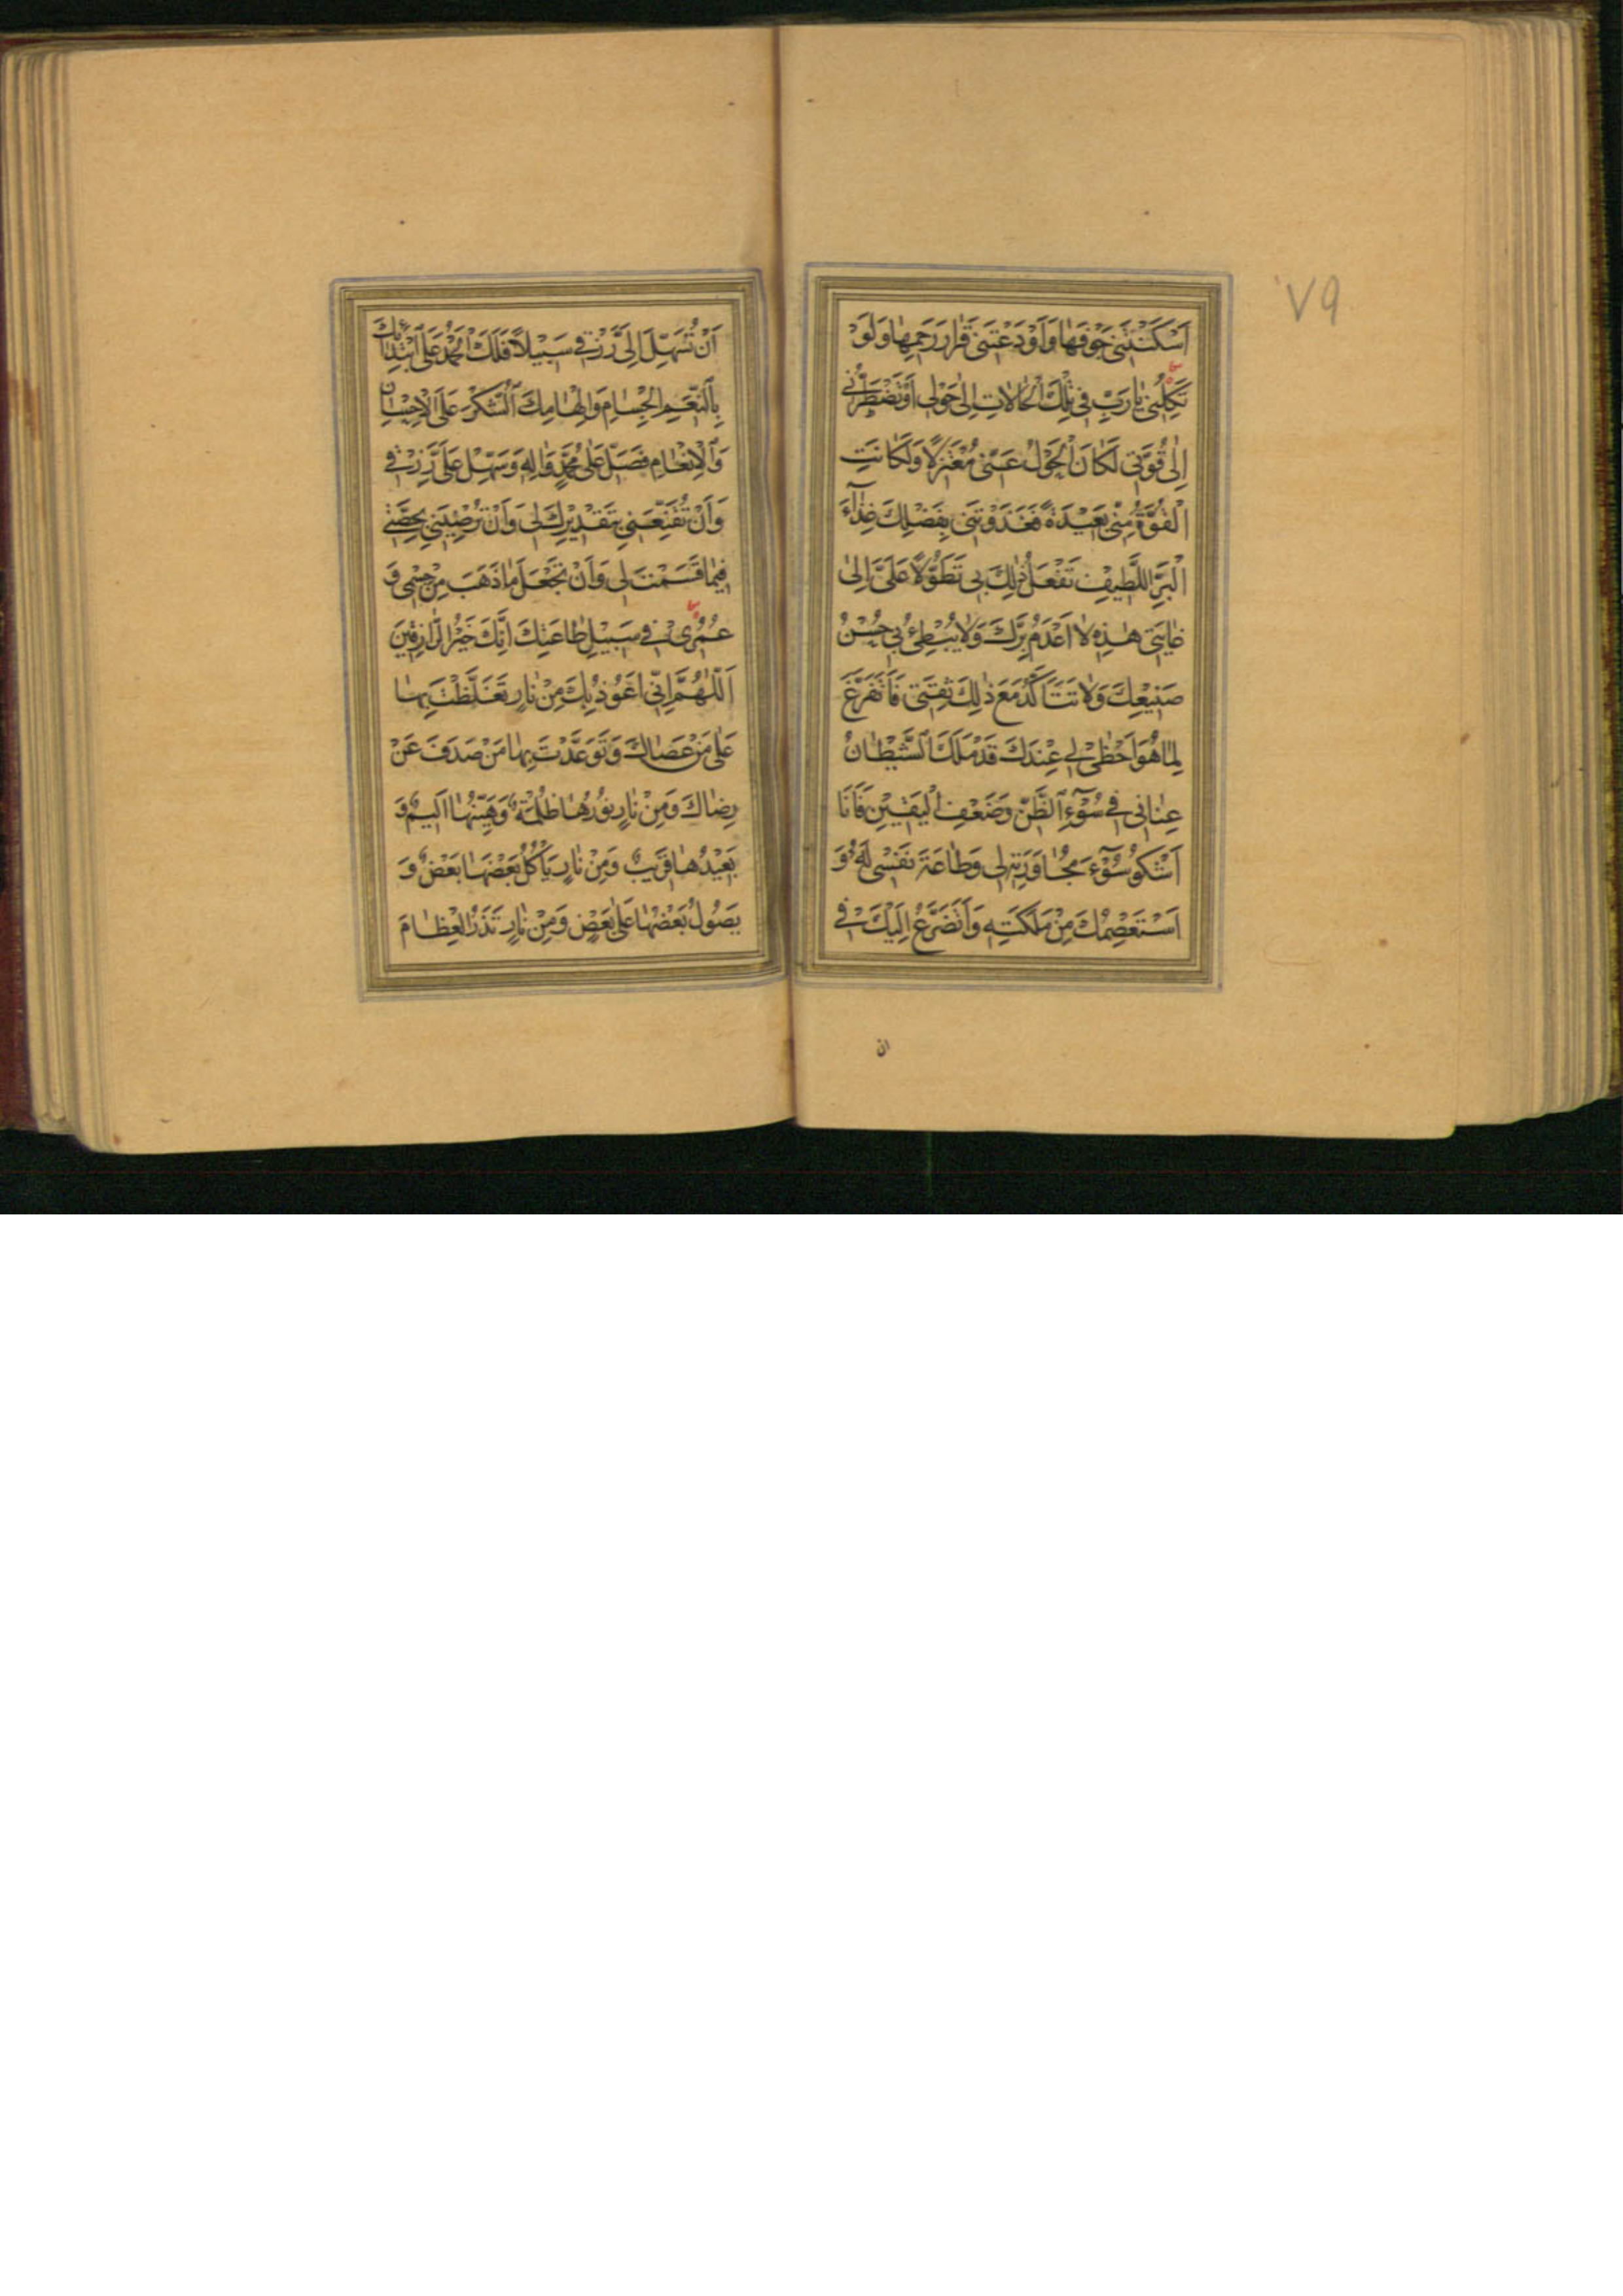 ٧٩
اَسْكَنْتَنِی جَوْفَهٰا وَاَوْدَعْتَنِی قَرٰارَ رَحِمِهٰا وَلَوْ
تَكِلْنِی یٰا رَبِّ فِی تِلْكَ الْحٰالاتِ اِلٰی حَوْلِی اَوْ تَضْطَرُّنِی
اِلٰی قُوَّتِی لَكٰانَ الْحَوْلُ عَنِّی مُعْتَزِلاً وَلَكٰانَتِ
الْقُوَّةُ مِنِّی بَعِیْدَةً فَغَذَوْتَنِی بِفَضْلِكَ غِذٰآءَ
الْبَرِّ اللَّطِیفِ تَفْعَلُ ذٰلِكَ بِی تَطَوُّلاً عَلَیَّ اِلٰی
غٰایَتِی هٰذِهِ لاٰ اَعْدَمُ بِرَّكَ وَلاٰ یُبْطِئُ بِی حُسْنُ
صَنِیْعِكَ وَلاٰ تَتَاَكَّدُ مَعَ ذٰلِكَ ثِقَتِی فَاَتَفَرَّغَ
لِمٰا هُوَ اَحْظٰی لِی عِنْدَكَ قَدْ مَلَكَ الشَّیْطٰانُ
عِنٰانِی فِی سُوْٓءِ الظَّنِّ وَضَعْفِ الْیَقِیْنِ فَاَنَا
اَشْكُو سُوْٓءَ مُجٰاوَرَتِهِ لِی وَطٰاعَةَ نَفْسِی لَهُ وَ
اَسْتَعْصِمُكَ مِنْ مَلَكَتِهِ وَاَتَضَرَّعُ اِلَیْكَ فِی
ان
اَنْ تُسَهِّلَ اِلٰی رِزْقِی سَبِیْلاً فَلَكَ الْحَمْدُ عَلَی ابْتِدٰائِكَ
بِالنِّعَمِ الْجِسٰامِ وَاِلْهٰامِكَ الشُّكْرَ عَلَی الْاِحْسٰانِ
وَالْاِنْعٰامِ فَصَلِّ عَلٰی مُحَمَّدٍ وَاٰلِهِ وَسَهِّلْ عَلَیَّ رِزْقِی
وَاَنْ تُقَنِّعَنِی بِتَقْدِیْرِكَ لِی وَاَنْ تُرْضِیَنِی بِحِصَّتِی
فِیمٰا قَسَمْتَ لِی وَاَنْ تَجْعَلَ مٰا ذَهَبَ مِنْ جِسْمِی وَ
عُمُرِیْ فِی سَبِیْلِ طٰاعَتِكَ اِنَّكَ خَیْرُ الرّٰازِقِیْنَ
اَللّٰهُمَّ اِنِّی اَعُوْذُ بِكَ مِنْ نٰارٍ تَغَلَّظْتَ بِهٰا
عَلٰی مَنْ عَصٰاكَ وَتَوَعَّدْتَ بِهٰا مَنْ صَدَفَ عَنْ
رِضٰاكَ وَمِنْ نٰارٍ نُوْرُهٰا ظُلْمَةٌ وَهَیِّنُهٰا اَلِیْمٌ وَ
بَعِیْدُهٰا قَرِیْبٌ وَمِنْ نٰارٍ یَاْكُلُ بَعْضَهٰا بَعْضٌ وَ
یَصُوْلُ بَعْضُهٰا عَلٰی بَعْضٍ وَمِنْ نٰارٍ تَذَرُ الْعِظٰامَ